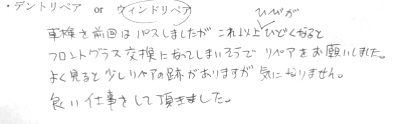 ・デントリペア or ウィンドリペア
ひびが
車検を前回はパスしましたが これ以上ひどくなると
フロントグラス交換になってしまいそうで リペアをお願いしました。
よく見ると少しリペアの跡がありますが 気になりません。
良い仕事をして頂きました。